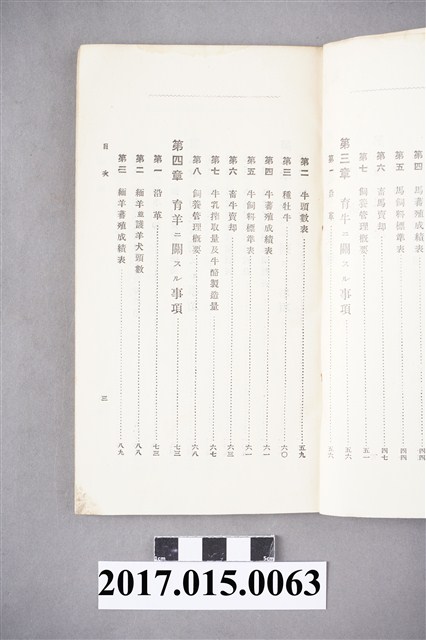 第四 馬蕃殖成績表 四四
第五 馬飼料標準表 四四
第六 畜馬賣却 四七
第七 飼養管理概要 五一
第三章 育牛ニ關スル事項 五六
第一 沿革 五六
第二 牛頭數表 五九
第三 種牡牛 六〇
第四 牛蕃殖成績表 六一
第五 牛飼料標準表 六一
第六 畜牛賣却 六三
第七 牛乳搾取量及牛酪製造量 六七
第八 飼養管理概要 六八
第四章 育羊ニ關スル事項 七三
第一 沿革 七三
第二 緬羊並護羊犬頭數 八八
第三 緬羊蕃殖成績表 八九
目次
三
1cm
5cm
2017.015.0063